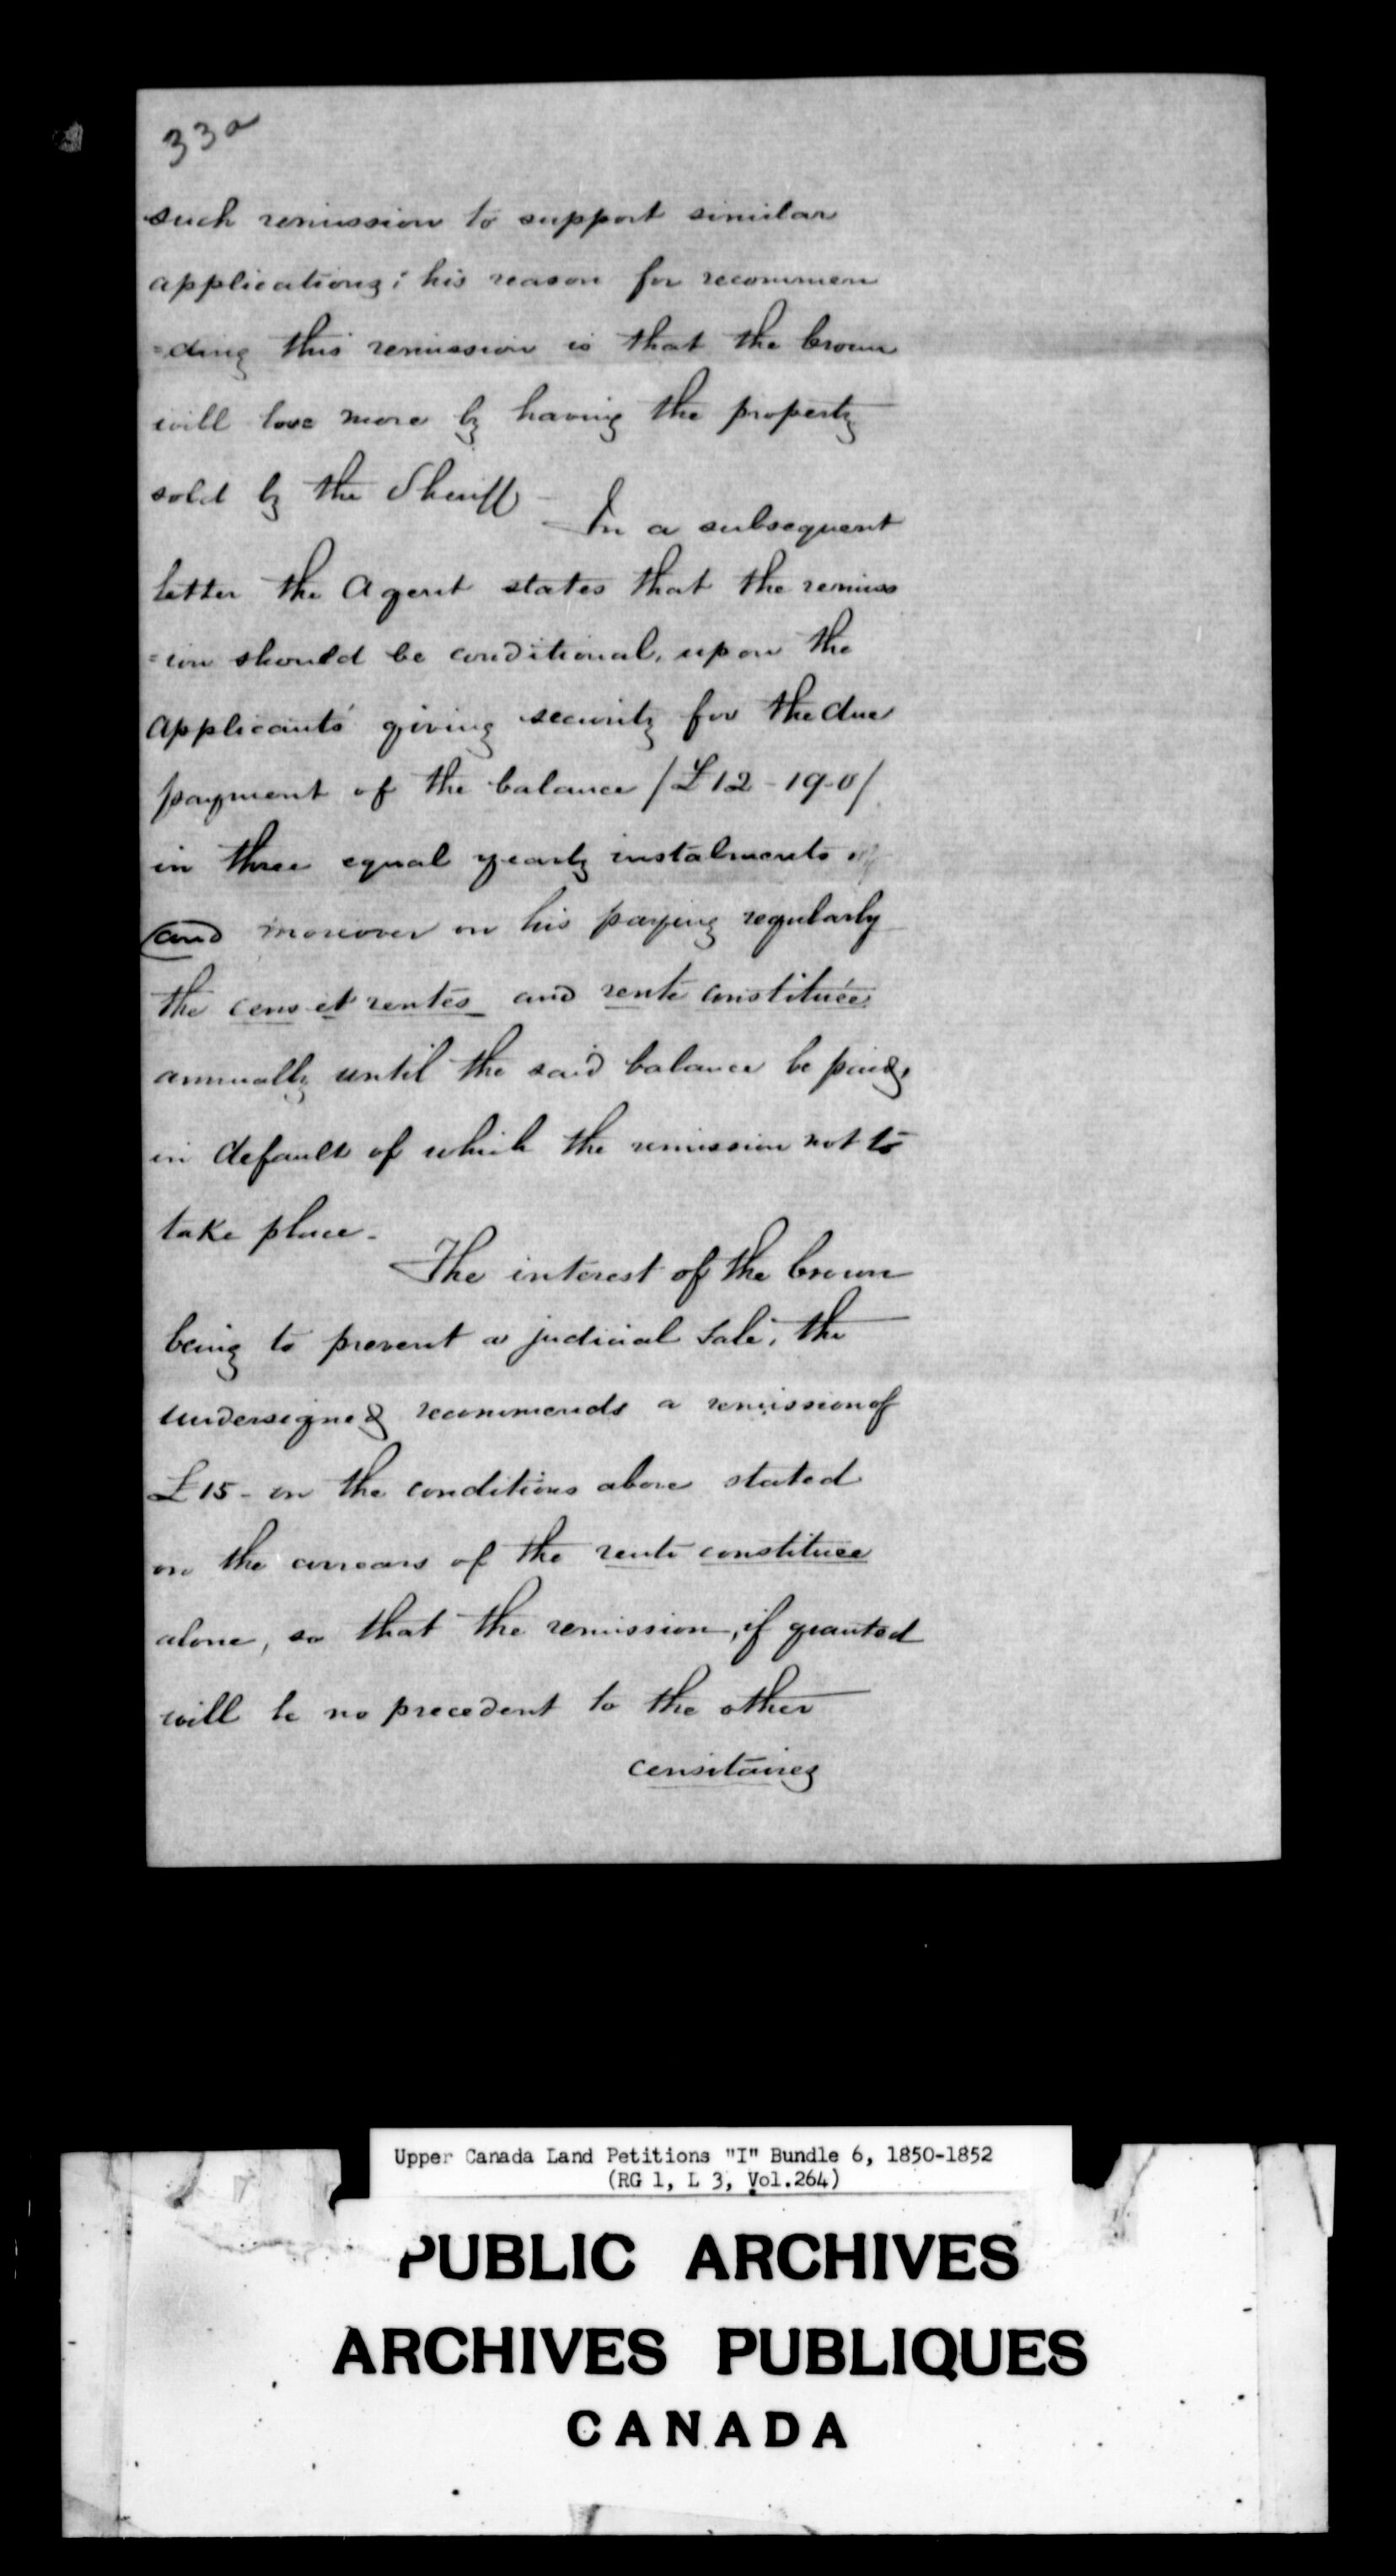 33a
such remission to support similar
applications; his reason for recommen
=ding this remission is that the Crown
will lose more by having the property
sold by the Sheriff -
In a subsequent
letter the Agent states that the remiss
=ion should be conditional, upon the
applicants' giving security for the due
payment of the balance /£12-19-0/
in three equal yearly instalments
and moreover on his paying regularly
the cens et rentes and rente constituée
annually until the said balance be paid,
in default of which the remission not to
take place.
The interest of the Crown
being to prevent a judicial sale, the
undersigned recommends a remission of
£15 - on the conditions above stated
on the arrears of the rente constituée
alone, so that the remission, if granted
will be no precedent to the other
censitaires
Upper Canada Land Petitions "I" Bundle 6, 1850-1852
(RG 1, L 3, Vol.264)
PUBLIC ARCHIVES
ARCHIVES PUBLIQUES
CANADA